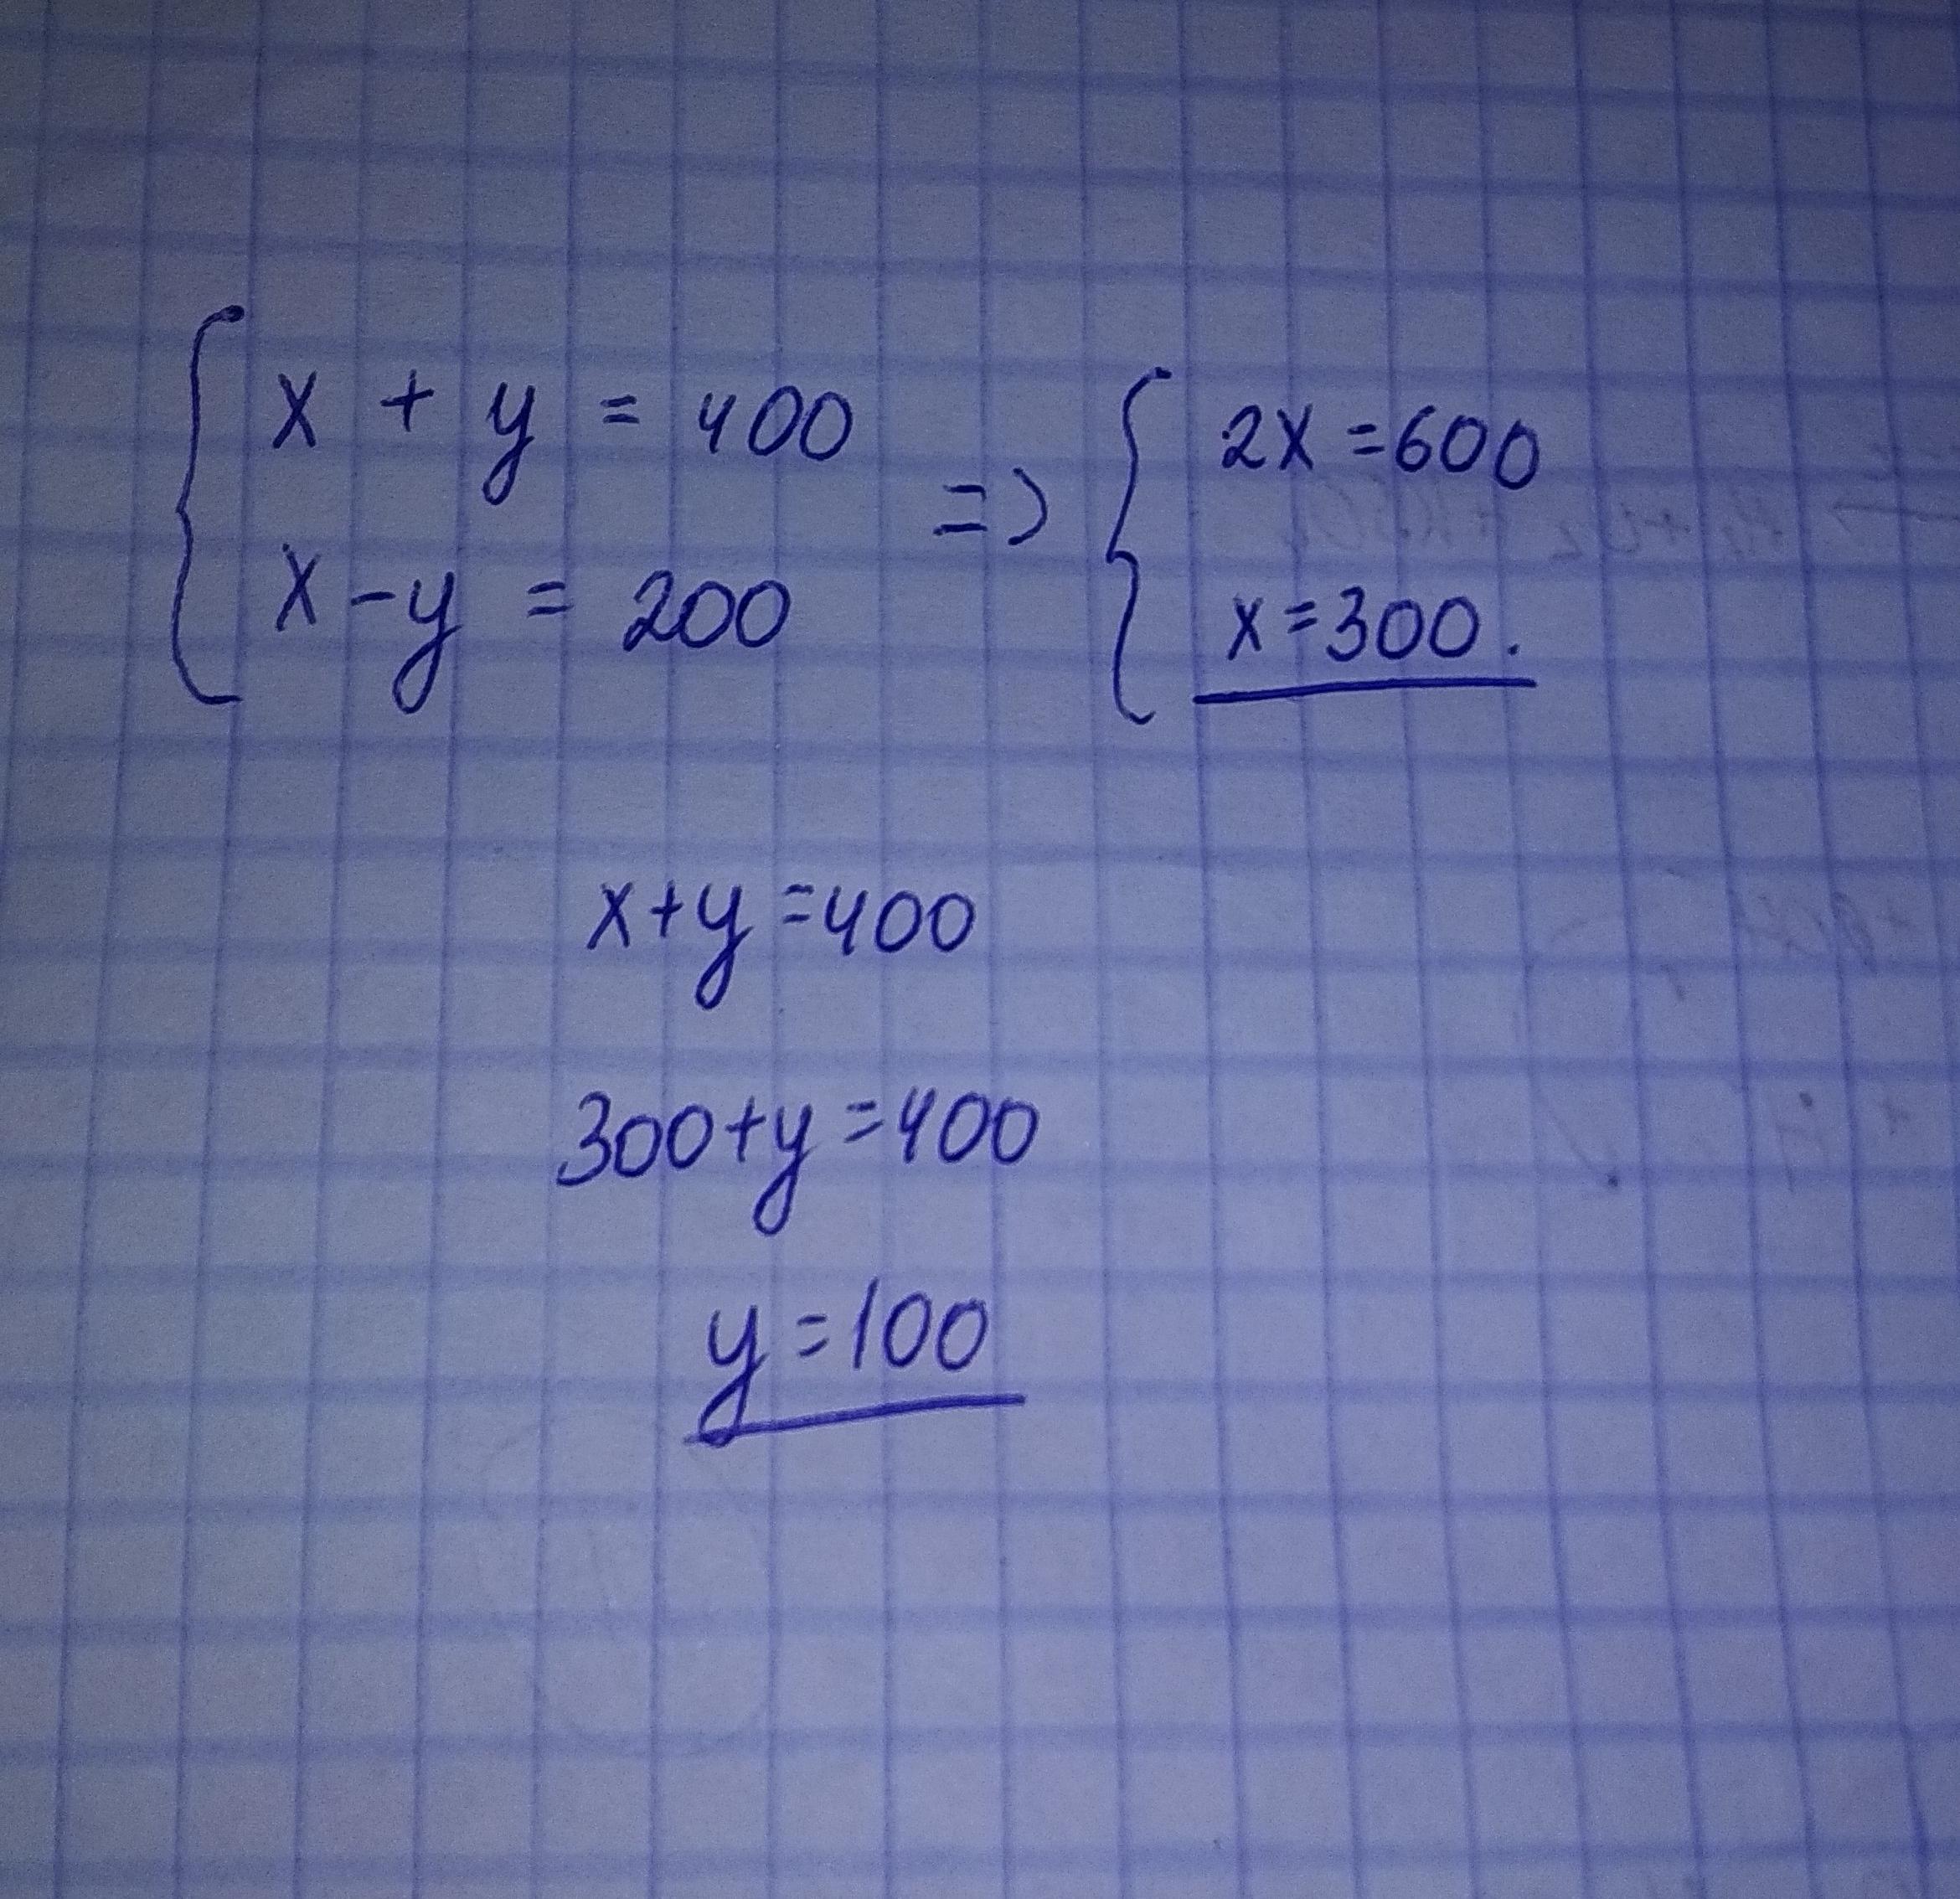 x + y = 400
x - y = 200
=>
2x = 600
x = 300.
x + y = 400
300 + y = 400
y = 100